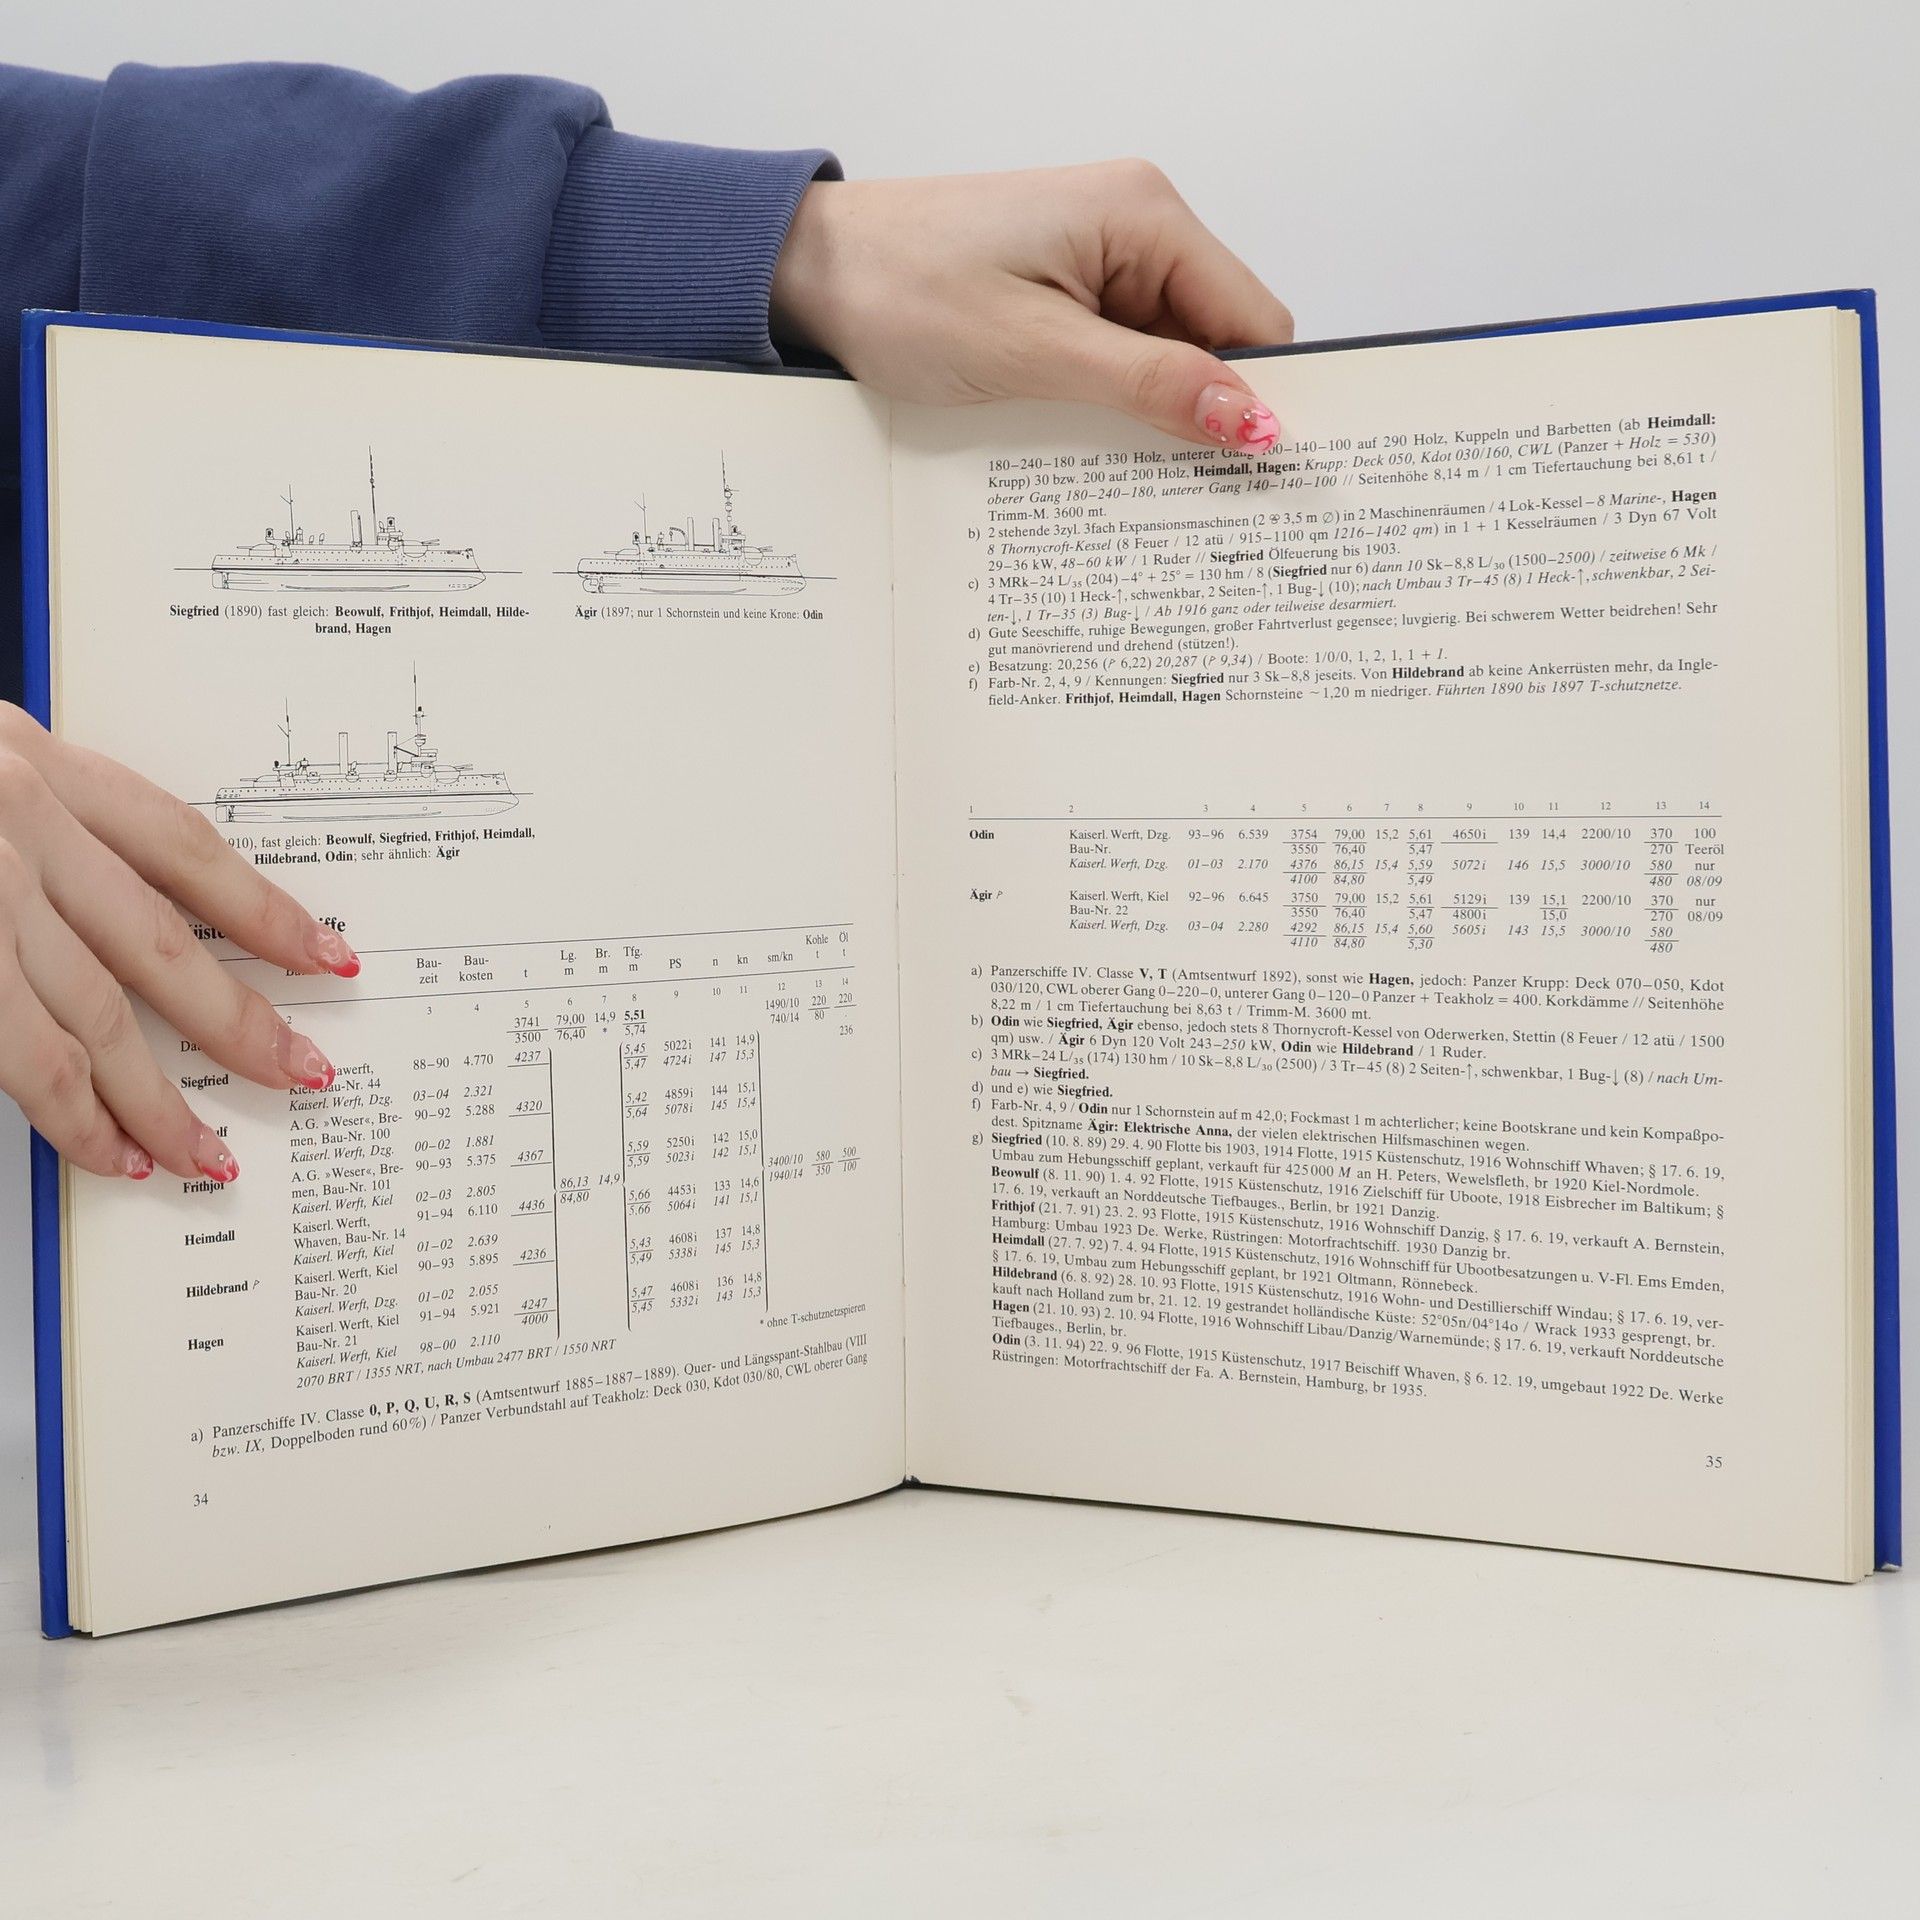 Siegfried (1890) fast gleich: Beowulf, Frithjof, Heimdall, Hilde-
brand, Hagen
Ägir (1897; nur 1 Schornstein und keine Krone: Odin
910), fast gleich: Beowulf, Siegfried, Frithjof, Heimdall,
Hildebrand, Odin; sehr ähnlich: Ägir
Bau- Bau- Lg. Br. Tfg. Kohle Öl
zeit kosten t m m m PS n kn sm/kn t t
2 3 4 5 6 7 8 9 10 11 12 13 14
3741 79,00 14,9 5,51 1490/10 220 220
3500 76,40 * 5,74 740/14 80 .
Siegfried 88–90 4.770 4237 5,45 5022i 141 14,9 236
Kiel, Bau-Nr. 44 5,47 4724i 147 15,3
Kaiserl. Werft, Dzg. 03–04 2.321
A.G. »Weser«, Bre- 90–92 5.288 4320 5,42 4859i 144 15,1
men, Bau-Nr. 100 5,64 5078i 145 15,4
Kaiserl. Werft, Dzg. 00–02 1.881
Frithjof A.G. »Weser«, Bre- 90–93 5.375 4367 5,59 5250i 142 15,0
men, Bau-Nr. 101 5,59 5023i 142 15,1
Kaiserl. Werft, Kiel 02–03 2.805 86,13 14,9 3400/10 580 500
84,80 1940/14 350 100
Heimdall Kaiserl. Werft, 91–94 6.110 4436 5,66 4453i 133 14,6
Whaven, Bau-Nr. 14 5,66 5064i 141 15,1
Kaiserl. Werft, Kiel 01–02 2.639
Hildebrand Kaiserl. Werft, Kiel 90–93 5.895 4236 5,43 4608i 137 14,8
Bau-Nr. 20 5,49 5338i 145 15,3
Kaiserl. Werft, Dzg. 01–02 2.055
Hagen Kaiserl. Werft, Kiel 91–94 5.921 4247 5,47 4608i 136 14,8
Bau-Nr. 21 4000 5,45 5332i 143 15,3
Kaiserl. Werft, Kiel 98–00 2.110
* ohne T-schutznetzspieren
2070 BRT / 1355 NRT, nach Umbau 2477 BRT / 1550 NRT
a) Panzerschiffe IV. Classe 0, P, Q, U, R, S (Amtsentwurf 1885–1887–1889). Quer- und Längsspant-Stahlbau (VIII
bzw. IX, Doppelboden rund 60%) / Panzer Verbundstahl auf Teakholz: Deck 030, Kdot 030/80, CWL oberer Gang
34
180–240–180 auf 330 Holz, unterer Gang 00–140–100 auf 290 Holz, Kuppeln und Barbetten (ab Heimdall:
Krupp) 30 bzw. 200 auf 200 Holz, Heimdall, Hagen: Krupp: Deck 050, Kdot 030/160, CWL (Panzer + Holz = 530)
oberer Gang 180–240–180, unterer Gang 140–140–100 // Seitenhöhe 8,14 m / 1 cm Tiefertauchung bei 8,61 t /
Trimm-M. 3600 mt.
b) 2 stehende 3zyl. 3fach Expansionsmaschinen (2 3,5 m ∅) in 2 Maschinenräumen / 4 Lok-Kessel – 8 Marine-, Hagen
8 Thornycroft-Kessel (8 Feuer / 12 atü / 915–1100 qm 1216–1402 qm) in 1 + 1 Kesselräumen / 3 Dyn 67 Volt
29–36 kW, 48–60 kW / 1 Ruder // Siegfried Ölfeuerung bis 1903.
c) 3 MRk–24 L/35 (204) –4° + 25° = 130 hm / 8 (Siegfried nur 6) dann 10 Sk–8,8 L/30 (1500–2500) / zeitweise 6 Mk /
4 Tr–35 (10) 1 Heck-↑, schwenkbar, 2 Seiten-↑, 1 Bug-↓ (10); nach Umbau 3 Tr–45 (8) 1 Heck-↑, schwenkbar, 2 Sei-
ten-↓, 1 Tr–35 (3) Bug-↓ / Ab 1916 ganz oder teilweise desarmiert.
d) Gute Seeschiffe, ruhige Bewegungen, großer Fahrtverlust gegensee; luvgierig. Bei schwerem Wetter beidrehen! Sehr
gut manövrierend und drehend (stützen!).
e) Besatzung: 20,256 (P 6,22) 20,287 (P 9,34) / Boote: 1/0/0, 1, 2, 1, 1 + 1.
f) Farb-Nr. 2, 4, 9 / Kennungen: Siegfried nur 3 Sk–8,8 jeseits. Von Hildebrand ab keine Ankerrüsten mehr, da Ingle-
field-Anker. Frithjof, Heimdall, Hagen Schornsteine ~1,20 m niedriger. Führten 1890 bis 1897 T-schutznetze.
1 2 3 4 5 6 7 8 9 10 11 12 13 14
Odin Kaiserl. Werft, Dzg. 93–96 6.539 3754 79,00 15,2 5,61 4650i 139 14,4 2200/10 370 100
Bau-Nr. 3550 76,40 5,47 270 Teeröl
Kaiserl. Werft, Dzg. 01–03 2.170 4376 86,15 15,4 5,59 5072i 146 15,5 3000/10 580 nur
4100 84,80 5,49 480 08/09
Ägir Kaiserl. Werft, Kiel 92–96 6.645 3750 79,00 15,2 5,61 5129i 139 15,1 2200/10 370 nur
Bau-Nr. 22 3550 76,40 5,47 4800i 15,0 270 08/09
Kaiserl. Werft, Dzg. 03–04 2.280 4292 86,15 15,4 5,60 5605i 143 15,5 3000/10 580
4110 84,80 5,30 480
a) Panzerschiffe IV. Classe V, T (Amtsentwurf 1892), sonst wie Hagen, jedoch: Panzer Krupp: Deck 070–050, Kdot
030/120, CWL oberer Gang 0–220–0, unterer Gang 0–120–0 Panzer + Teakholz = 400. Korkdämme // Seitenhöhe
8,22 m / 1 cm Tiefertauchung bei 8,63 t / Trimm-M. 3600 mt.
b) Odin wie Siegfried, Ägir ebenso, jedoch stets 8 Thornycroft-Kessel von Oderwerken, Stettin (8 Feuer / 12 atü / 1500
qm) usw. / Ägir 6 Dyn 120 Volt 243–250 kW, Odin wie Hildebrand / 1 Ruder.
c) 3 MRk–24 L/35 (174) 130 hm / 10 Sk–8,8 L/30 (2500) / 3 Tr–45 (8) 2 Seiten-↑, schwenkbar, 1 Bug-↓ (8) / nach Um-
bau → Siegfried.
d) und e) wie Siegfried.
f) Farb-Nr. 4, 9 / Odin nur 1 Schornstein auf m 42,0; Fockmast 1 m achterlicher; keine Bootskrane und kein Kompaßpo-
dest. Spitzname Ägir: Elektrische Anna, der vielen elektrischen Hilfsmaschinen wegen.
g) Siegfried (10. 8. 89) 29. 4. 90 Flotte bis 1903, 1914 Flotte, 1915 Küstenschutz, 1916 Wohnschiff Whaven; § 17. 6. 19,
Umbau zum Hebungsschiff geplant, verkauft für 425000 M an H. Peters, Wewelsfleth, br 1920 Kiel-Nordmole.
Beowulf (8. 11. 90) 1. 4. 92 Flotte, 1915 Küstenschutz, 1916 Zielschiff für Uboote, 1918 Eisbrecher im Baltikum; §
17. 6. 19, verkauft an Norddeutsche Tiefbauges., Berlin, br 1921 Danzig.
Frithjof (21. 7. 91) 23. 2. 93 Flotte, 1915 Küstenschutz, 1916 Wohnschiff Danzig, § 17. 6. 19, verkauft A. Bernstein,
Hamburg: Umbau 1923 De. Werke, Rüstringen: Motorfrachtschiff. 1930 Danzig br.
Heimdall (27. 7. 92) 7. 4. 94 Flotte, 1915 Küstenschutz, 1916 Wohnschiff für Ubootbesatzungen u. V-Fl. Ems Emden,
§ 17. 6. 19, Umbau zum Hebungsschiff geplant, br 1921 Oltmann, Rönnebeck.
Hildebrand (6. 8. 92) 28. 10. 93 Flotte, 1915 Küstenschutz, 1916 Wohn- und Destillierschiff Windau; § 17. 6. 19, ver-
kauft nach Holland zum br, 21. 12. 19 gestrandet holländische Küste: 52°05n/04°14o / Wrack 1933 gesprengt, br.
Hagen (21. 10. 93) 2. 10. 94 Flotte, 1916 Wohnschiff Libau/Danzig/Warnemünde; § 17. 6. 19, verkauft Norddeutsche
Tiefbauges., Berlin, br.
Odin (3. 11. 94) 22. 9. 96 Flotte, 1915 Küstenschutz, 1917 Beischiff Whaven, § 6. 12. 19, umgebaut 1922 De. Werke
Rüstringen: Motorfrachtschiff der Fa. A. Bernstein, Hamburg, br 1935.
35